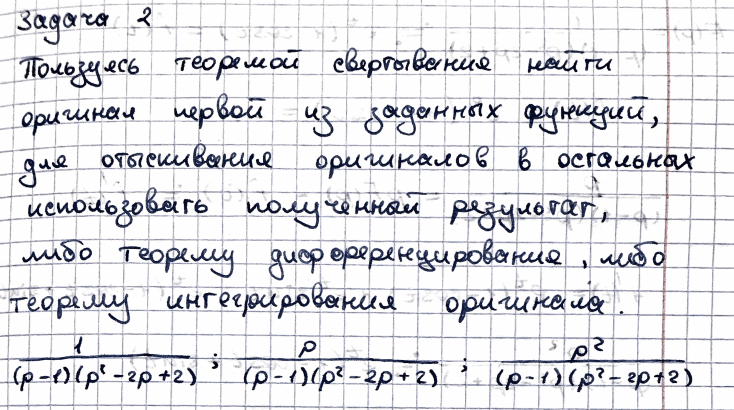 Задача 2
Пользуясь теоремой свертывания найти
оригинал первой из заданных функций,
для отыскивания оригиналов в остальных
использовать полученный результат,
либо теорему дифференцирования, либо
теорему интегрирования оригинала.
1/((p-1)(p²-2p+2)) ; p/((p-1)(p²-2p+2)) ; p²/((p-1)(p²-2p+2))